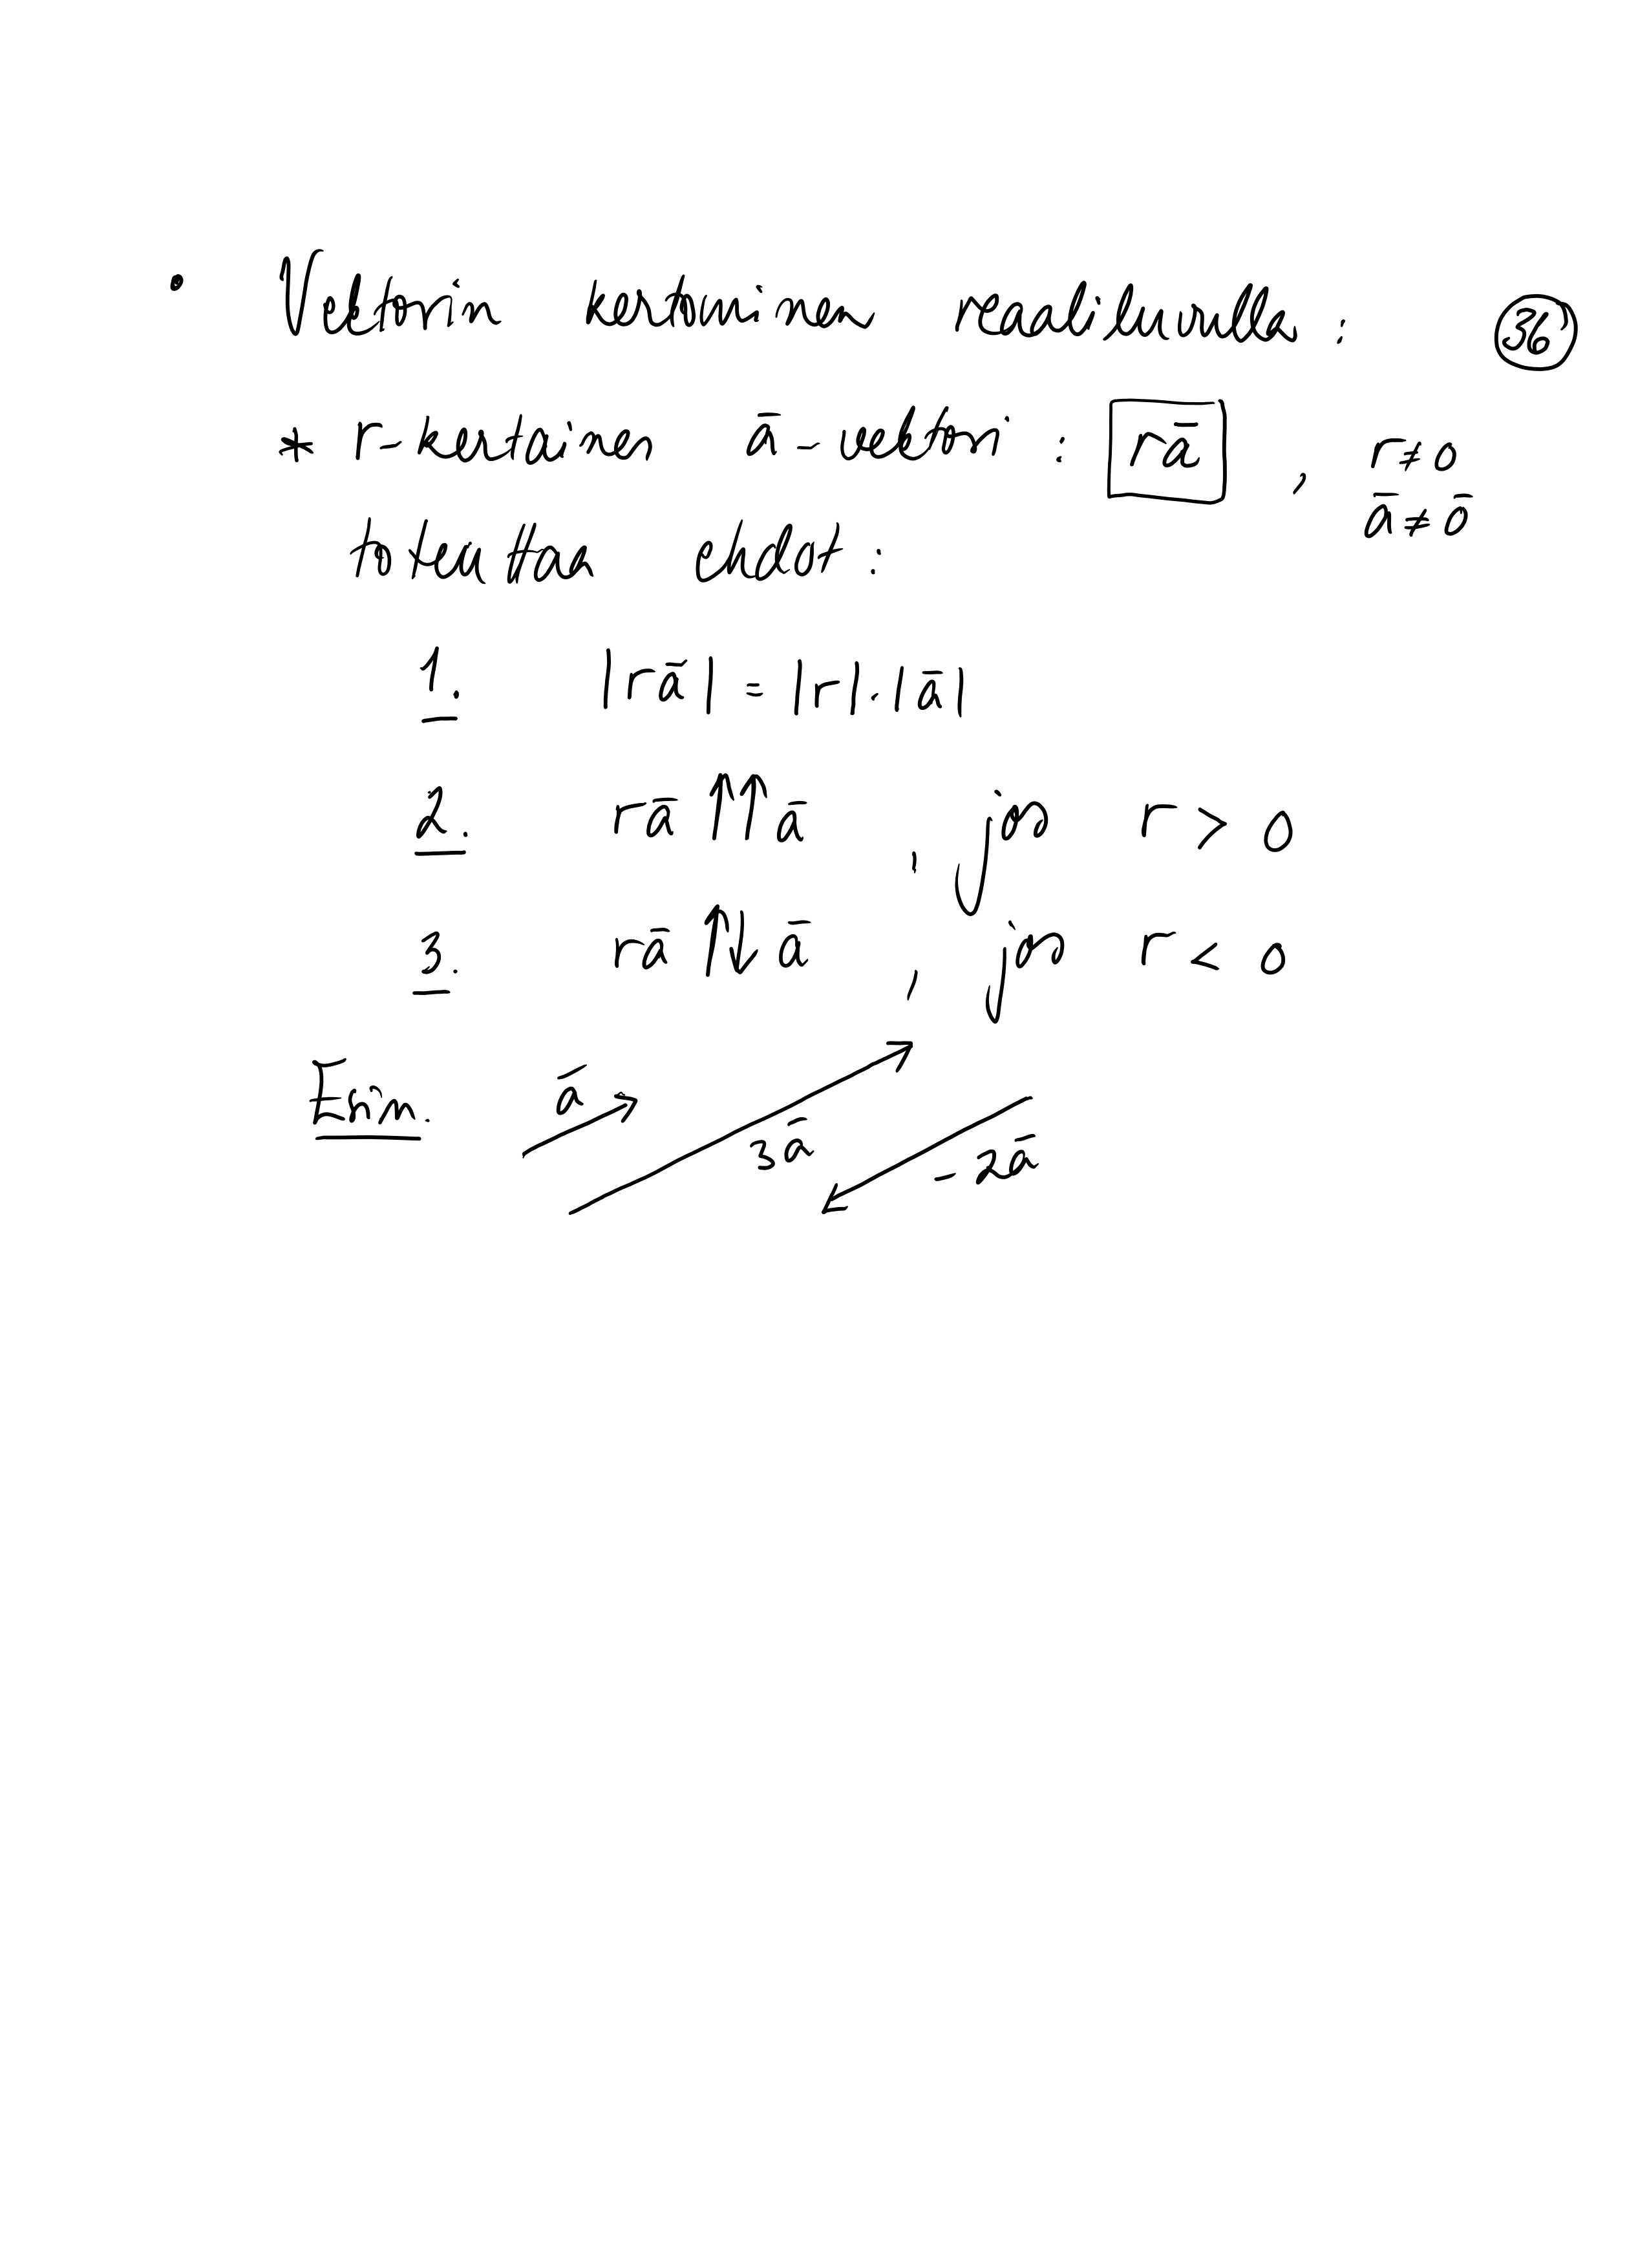 • Vektorin kertominen reaaliluvulla : 36
* r-kertainen ā-vektori : rā , r ≠ 0
ā ≠ ō
toteuttaa ehdot :
1. |rā| = |r|·|ā|
2. rā ↑↑ ā , jos r > 0
3. rā ↑↓ ā , jos r < 0
Esim. ā 3ā -2ā